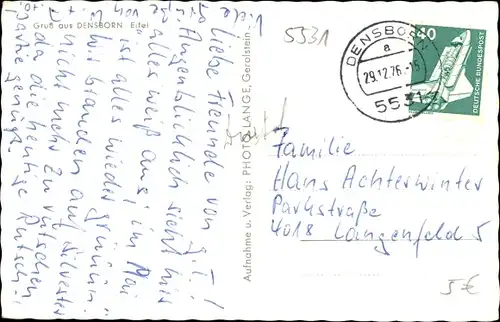 Gruß aus DENSBORN Eifel
5531
DENSBORN
a
29.12.76-15
5531
40
DEUTSCHE BUNDESPOST
Aufnahme u. Verlag: PHOTO-LANGE, Gerolstein
liebe Freunde von
Augenblicklich sieht hier
alles weiß aus, im Mai
ist alles wieder grün!!
Wir brauchen an Silvester
nicht mehr zu rutschen
da die heutige Rutsch-
partie genügt.
Familie
Hans Achterwinter
Parkstraße
4018 Langenfeld 5
5€